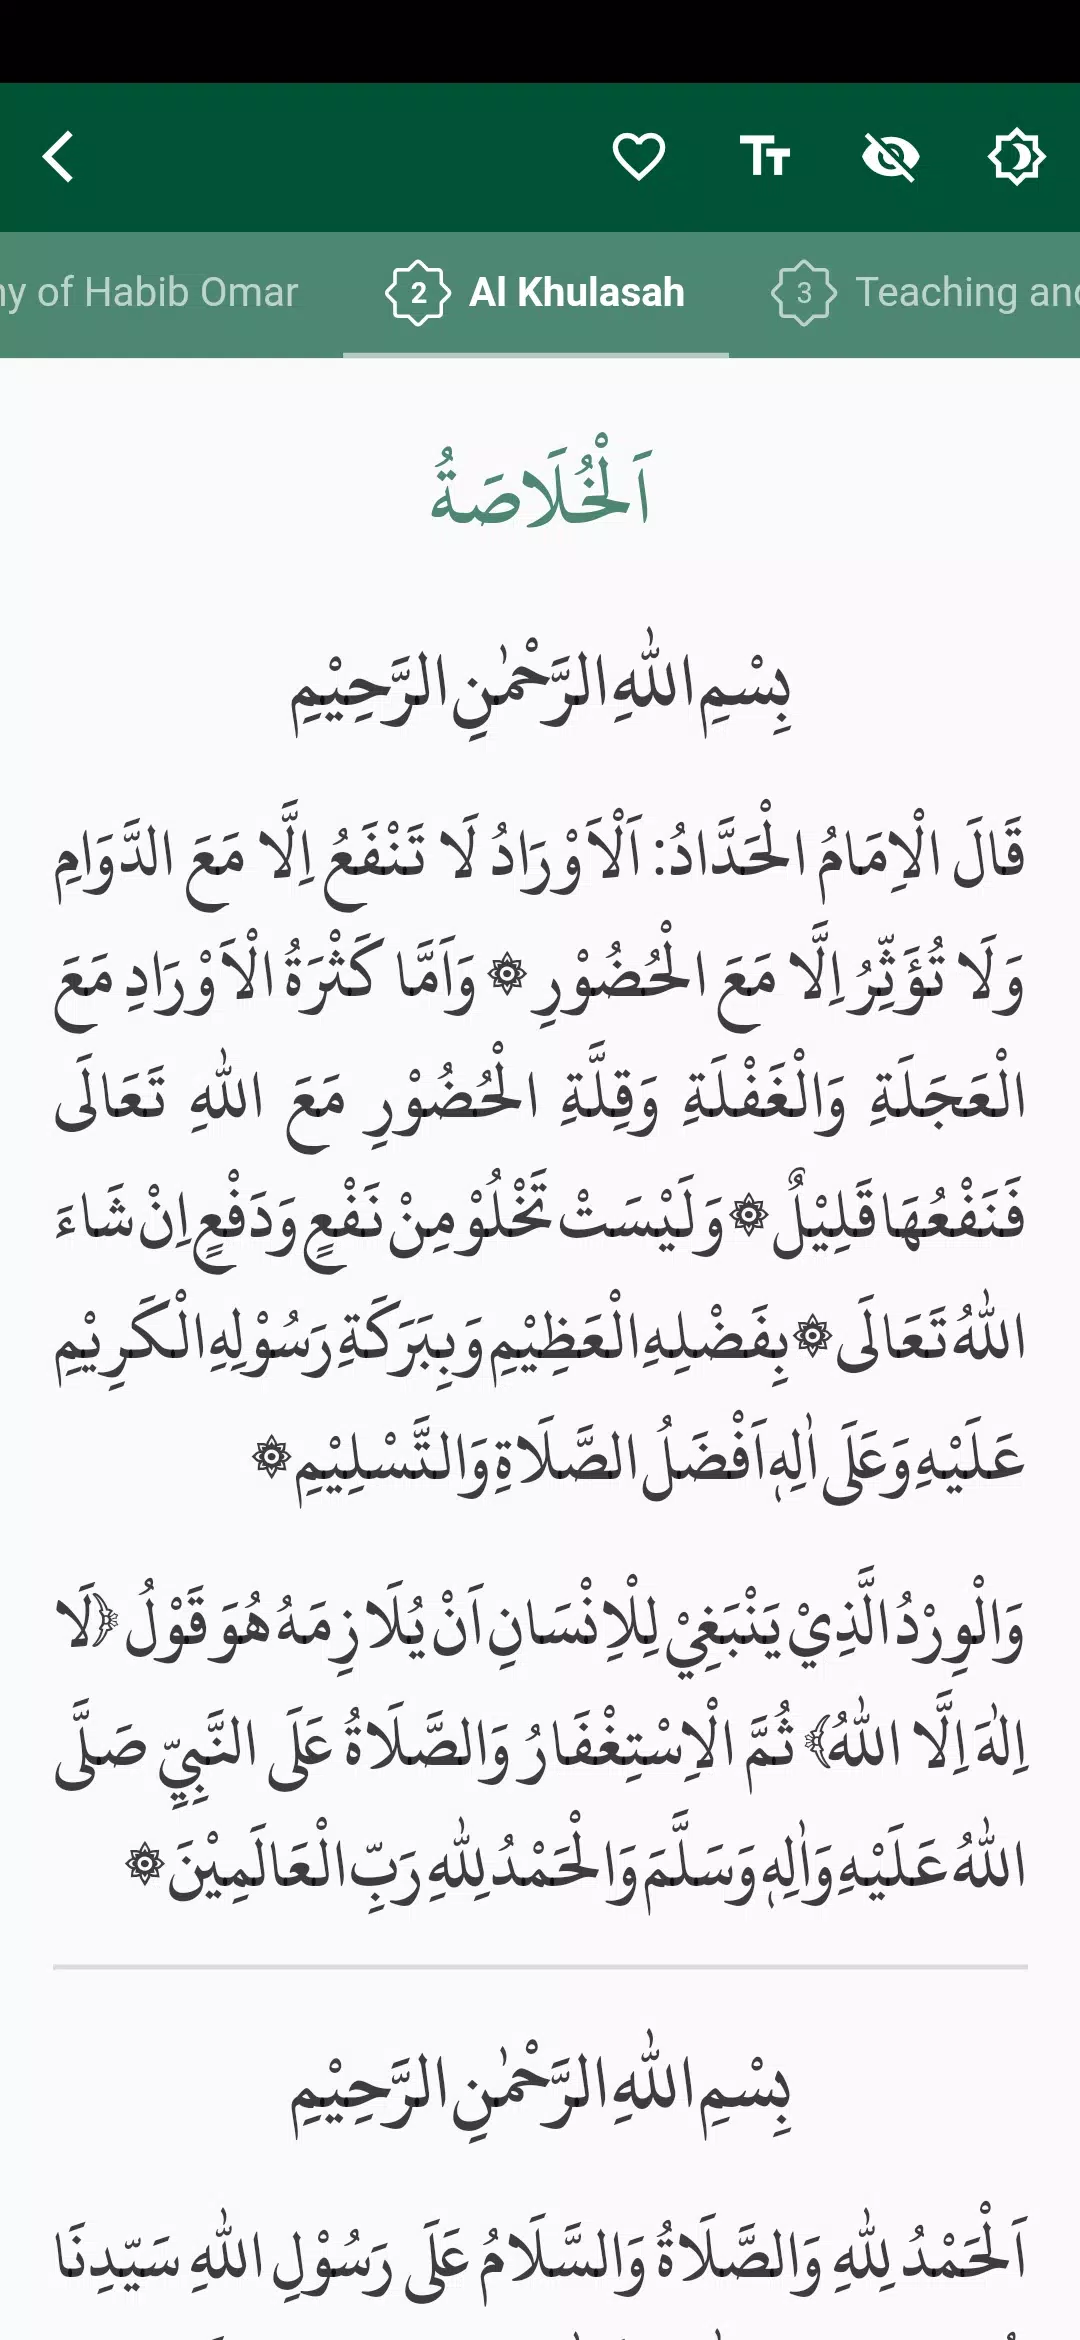 ny of Habib Omar 2 Al Khulasah 3 Teaching and
اَلْخُلَاصَةُ
بِسْمِ اللّٰهِ الرَّحْمٰنِ الرَّحِيْمِ
قَالَ الْاِمَامُ الْحَدَّادُ: اَلْاَوْرَادُ لَا تَنْفَعُ اِلَّا مَعَ الدَّوَامِ
وَلَا تُؤَثِّرُ اِلَّا مَعَ الْحُضُوْرِ ۞ وَاَمَّا كَثْرَةُ الْاَوْرَادِ مَعَ
الْعَجَلَةِ وَالْغَفْلَةِ وَقِلَّةِ الْحُضُوْرِ مَعَ اللّٰهِ تَعَالَى
فَنَفْعُهَا قَلِيْلٌ ۞ وَلَيْسَتْ تَخْلُوْ مِنْ نَفْعٍ وَدَفْعٍ اِنْ شَاءَ
اللّٰهُ تَعَالَى ۞ بِفَضْلِهِ الْعَظِيْمِ وَبِبَرَكَةِ رَسُوْلِهِ الْكَرِيْمِ
عَلَيْهِ وَعَلَى اٰلِهٖ اَفْضَلُ الصَّلَاةِ وَالتَّسْلِيْمِ ۞
وَالْوِرْدُ الَّذِيْ يَنْبَغِيْ لِلْاِنْسَانِ اَنْ يُلَازِمَهُ هُوَ قَوْلُ ﴿لَا
اِلٰهَ اِلَّا اللّٰهُ﴾ ثُمَّ الْاِسْتِغْفَارُ وَالصَّلَاةُ عَلَى النَّبِيِّ صَلَّى
اللّٰهُ عَلَيْهِ وَاٰلِهٖ وَسَلَّمَ وَالْحَمْدُ لِلّٰهِ رَبِّ الْعَالَمِيْنَ ۞
بِسْمِ اللّٰهِ الرَّحْمٰنِ الرَّحِيْمِ
اَلْحَمْدُ لِلّٰهِ وَالصَّلَاةُ وَالسَّلَامُ عَلَى رَسُوْلِ اللّٰهِ سَيِّدِنَا